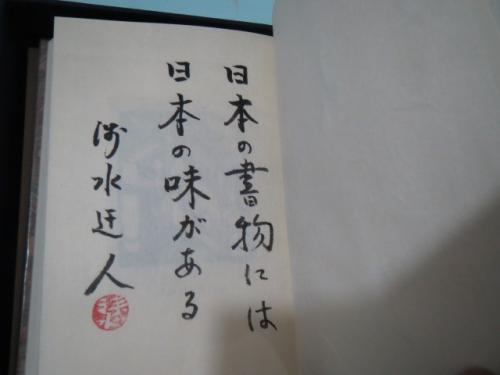 日本の書物には
日本の味がある
水迂人